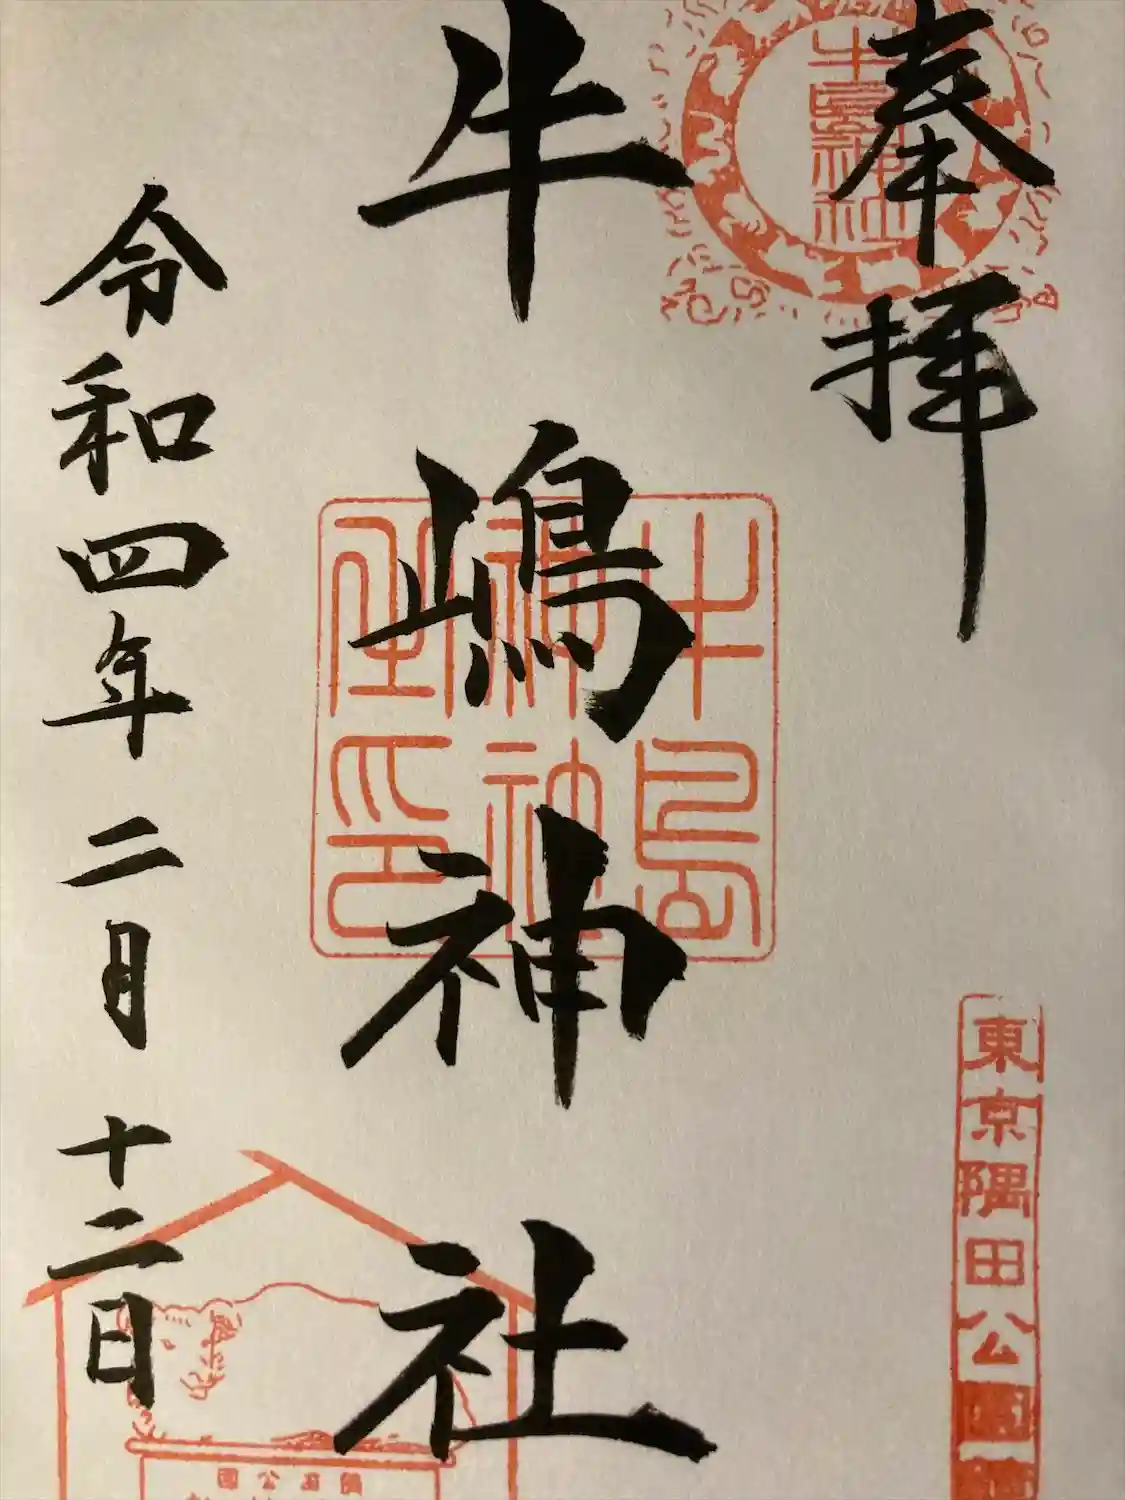 奉拝
牛嶋神社
牛島神社
牛島神社
神社
東京隅田公園
隅田公園
令和四年二月十二日